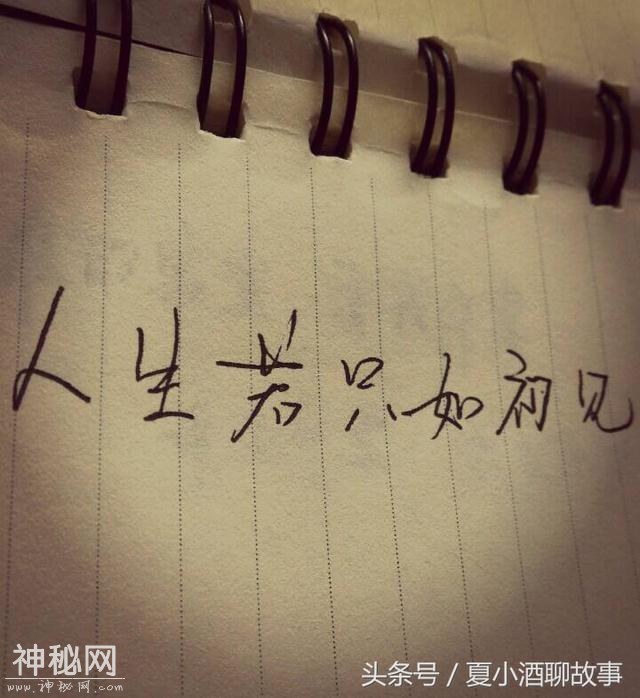 人生若只如初见
神秘网
www.神秘网.com
头条号 / 夏小酒聊故事